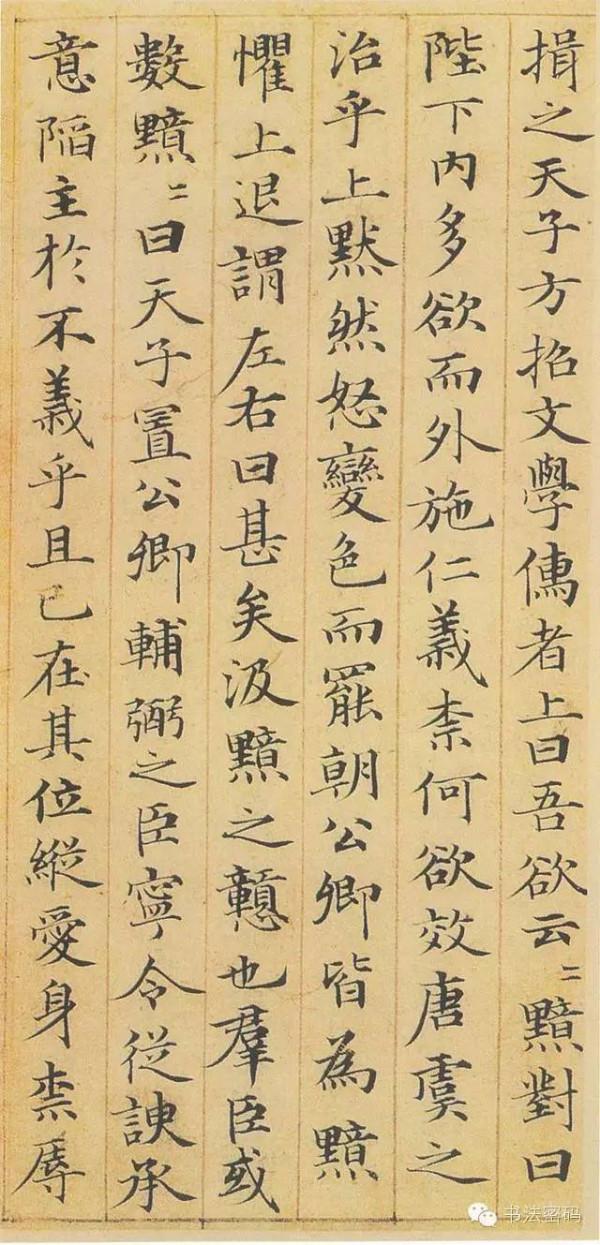 揖之天子方招文學儁者上曰吾欲云〻黯對曰
陛下内多欲而外施仁義柰何欲效唐虞之
治乎上默然怒變色而罷朝公卿皆為黯
懼上退謂左右曰甚矣汲黯之戇也羣臣或
數黯〻曰天子置公卿輔弼之臣寧令從諛承
意陷主於不義乎且已在其位縱愛身柰辱
书法密码